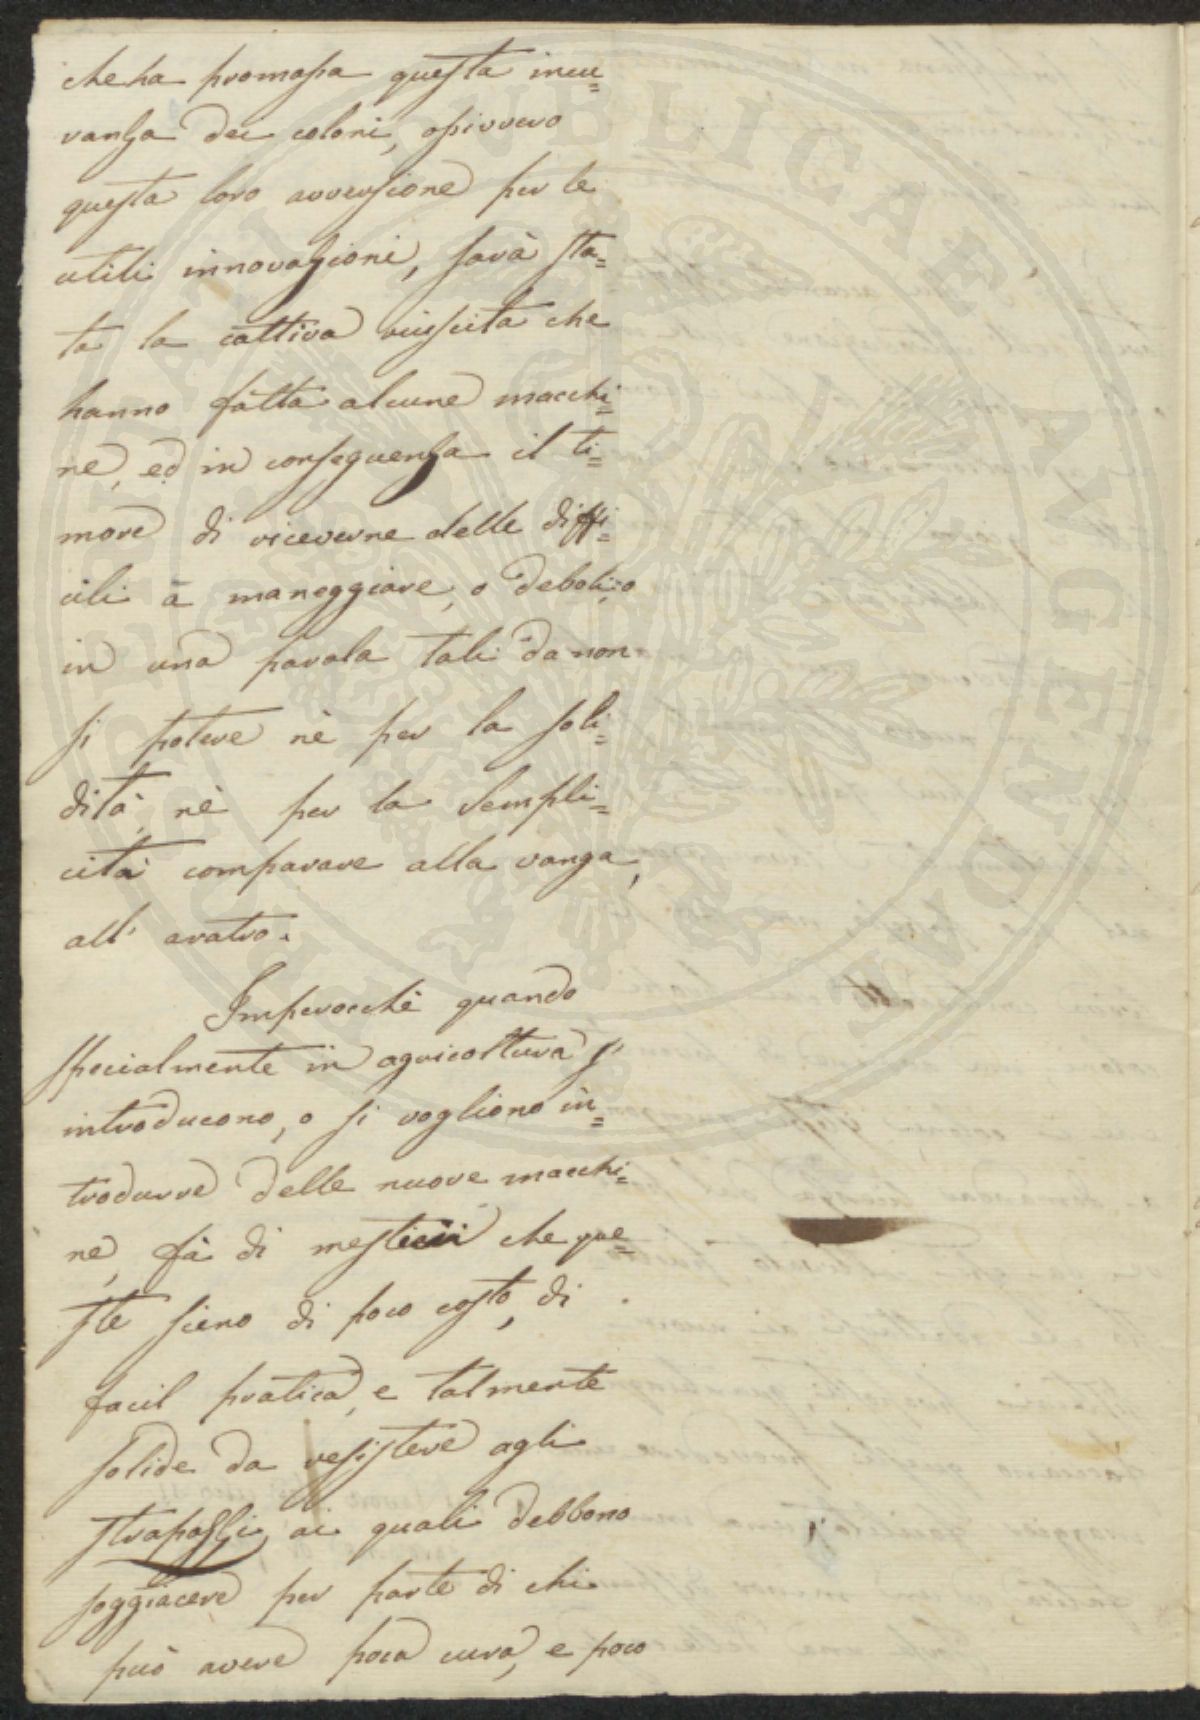 che ha promossa questa incu=
ranza dei coloni, ossivvero
questa loro avversione per le
utili innovazioni, sarà sta=
ta la cattiva riuscita che
hanno fatta alcune macchi=
ne, ed in conseguenza il ti=
more di riceverne delle diffi=
cili à maneggiare, o deboli, o
in una parola tali da non
si potere nè per la soli=
dità, nè per la sempli=
cità comparare alla vanga,
all' aratro.
Imperocchè quando
specialmente in agricoltura s'
introducono, o si vogliono in=
trodurre delle nuove macchi=
ne, fà di mestieri che que=
ste sieno di poco costo, di
facil pratica, e talmente
solide da resistere agli
strapazzi, ai quali debbono
soggiacere per parte di chi
può avere poca cura, e poco